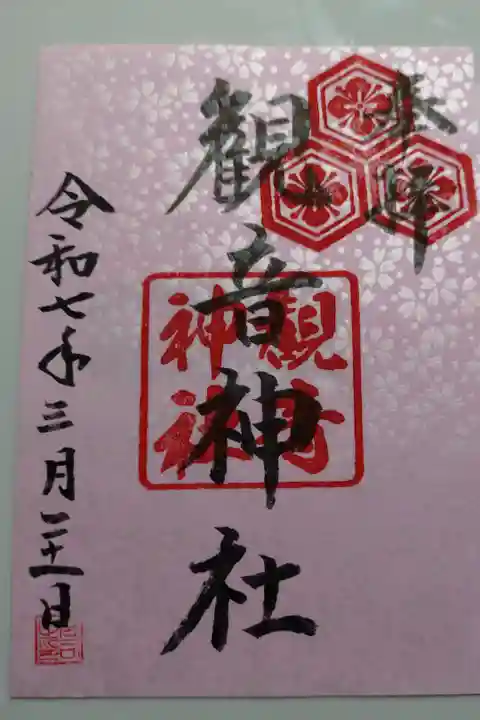 奉拝
觀音神社
観音
神社
令和七年三月二十一日